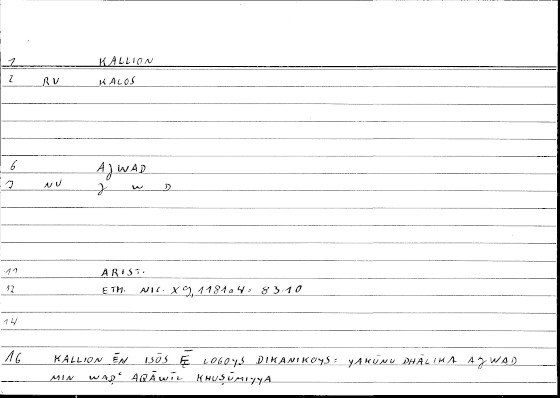 1 KALLION
2 RV KALOS
6 AJWAD
7 NV J W D
11 ARIST.
12 ETH. NIC. X 9, 1181a4 = 83.10
14
16 KALLION ĒN ISŌS Ē LOGOYS DIKANIKOYS = YAKŪNU DHĀLIKA AJWAD
MIN WAḌʿ AQĀWĪL KHUṢŪMIYYA